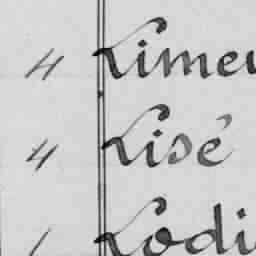 4 Limeu
4 Lisé
Lodi